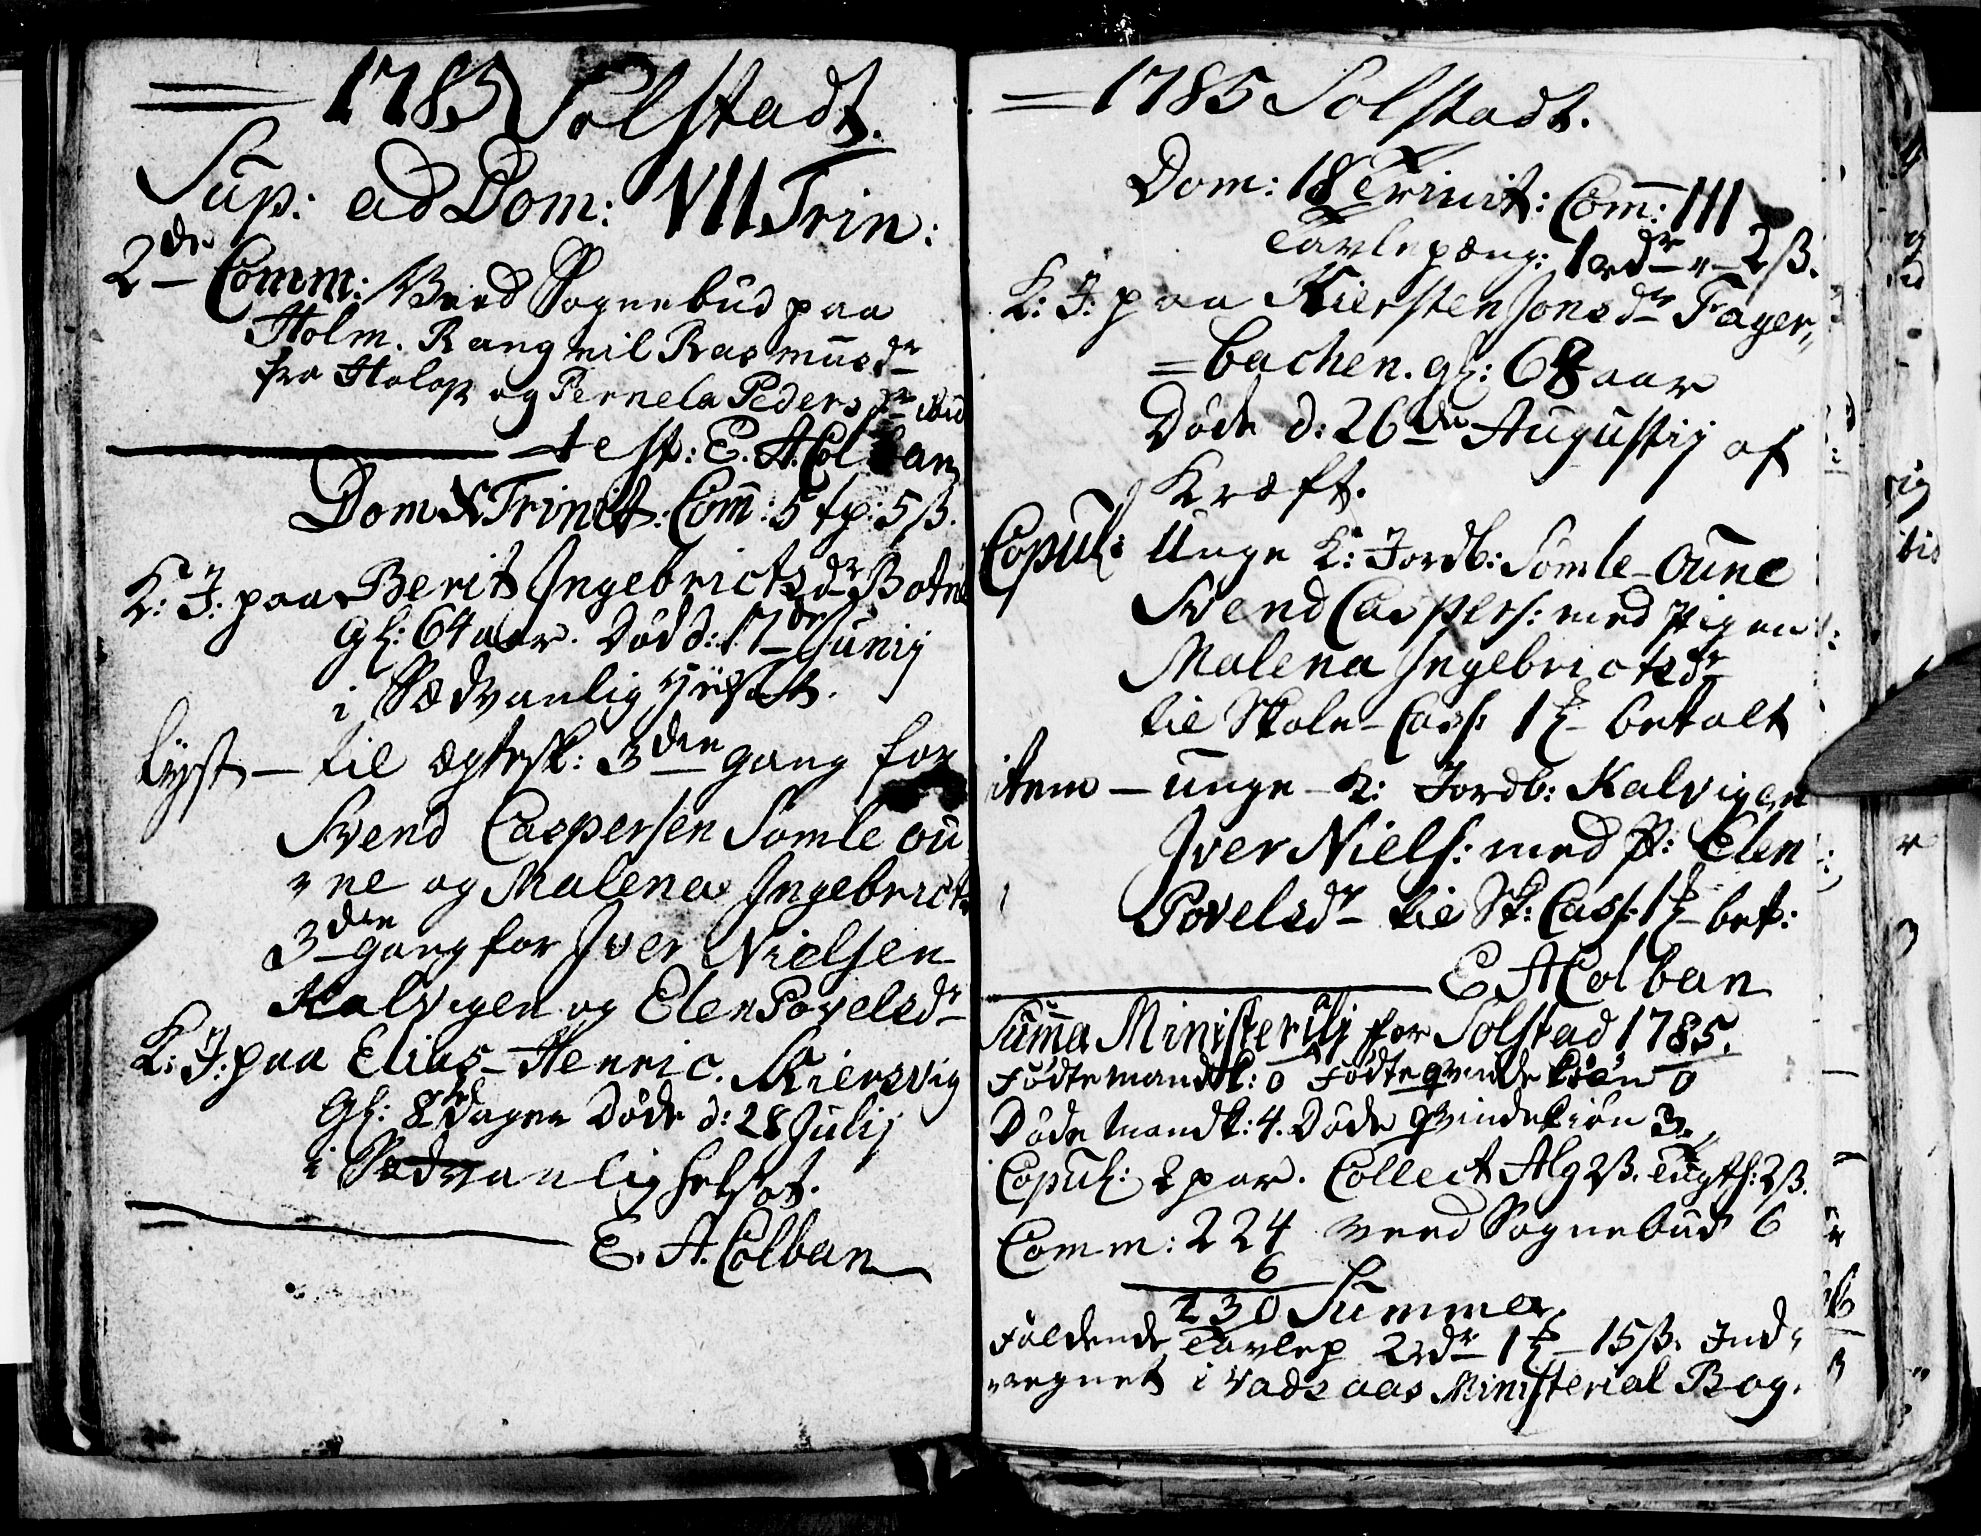 = 1785 Solstadt.
Sup: ad Dom: VII Trin:
2de Comm: Veed Sognebud paa
Holm. Rangnil Rasmusdr
fra Holm og Pernela Pedersdr ibid
test: E. A. Colban
Dom X Trinit: Com: 5 tp: 5 ß.
K: J: paa Berit Ingebrictsdr Botne
Gl: 64 aar. Død d: 17de Junij
i Sædvanlig
lyst – til ægtesk: 3den gang for
Svend Caspersen Somle ou
„ne og Malena Ingebricts
3den gang for Iver Nielsen
Kalvigen og Elen Povelsdr
K: J: paa Elias Henric. Kiersvig
Gl: 8te dager Døde d: 28 Julij
i Sædvanlighelsot.
E. A. Colban
= 1785 Solstadt.
Dom: 18 Trinit: Com: III
Tavlepæng: 1 rdr „ – 2 ß.
K: J: paa Kiersten Jonsdr Fager„
= bachen. gl: 68 aar
Døde d: 26de Augustij af
Kræft.
Copul: Unge K: Jordb: Somle-Oune
Svend Caspers: med Pigen
Malena Ingebrictsdr
til Skole-Cass: 1 ℔ betalt
item – unge K: Jordb: Kalvigen
Iver Niels: med P: Elen
Povelsdr til Sk: Cass: 1 ℔ bet:
E A Colban
Summa Ministerialj for Solstad 1785.
Fødte mandk: 0 Fødte qvindekiøn 0
Døde mandk: 4. Døde qvindekiøn 3„
Copul: 2 par. Collect Alg 2 ß. Tugth: 2 ß.
Comm: 224 veed Sognebud 6
6
230 Summa
Faldende Tavlep 2 rdr 1 ℔ – 15 ß. Ind„
„regnet i Vadsaas Ministerial Bog.